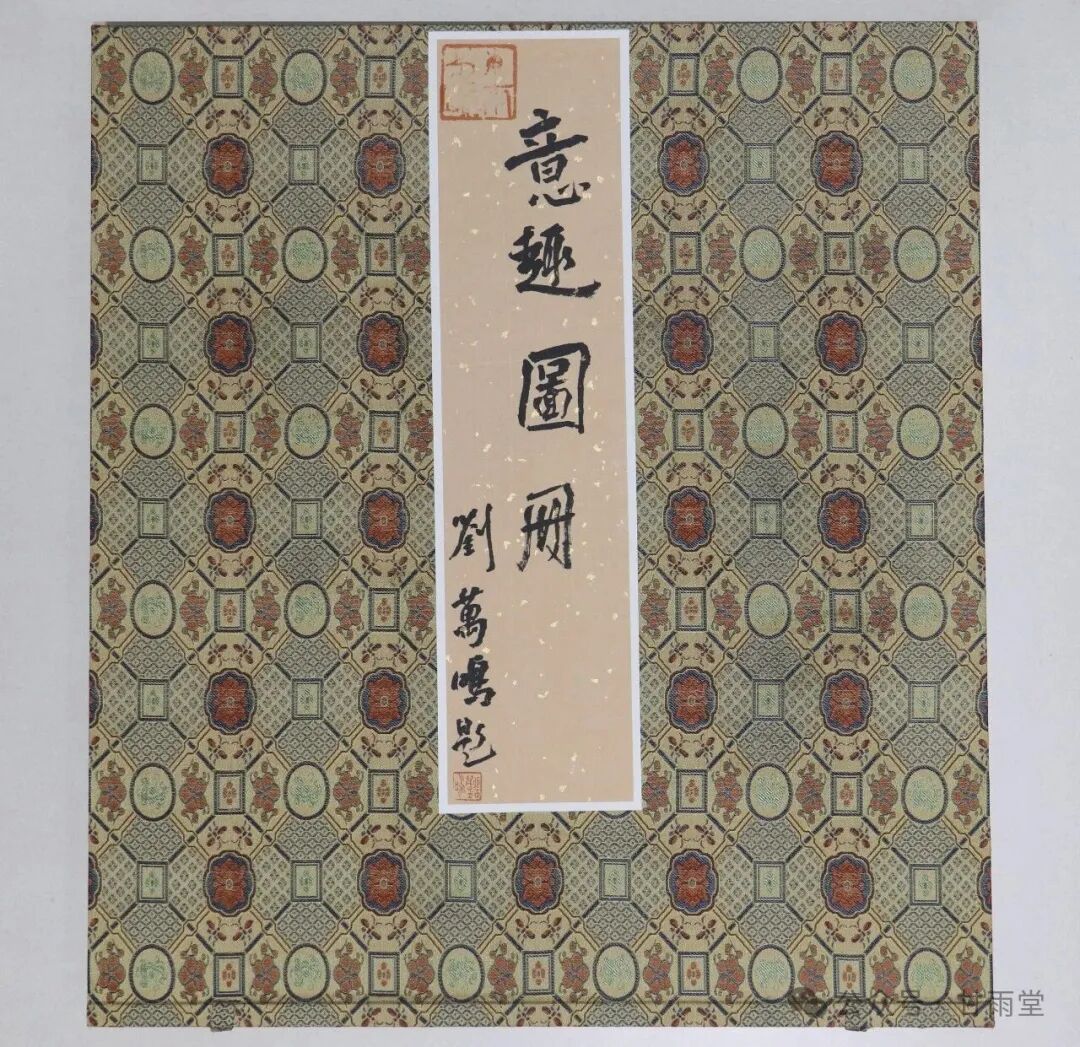 意趣圖册
劉萬鳴題
公众号·甘雨堂